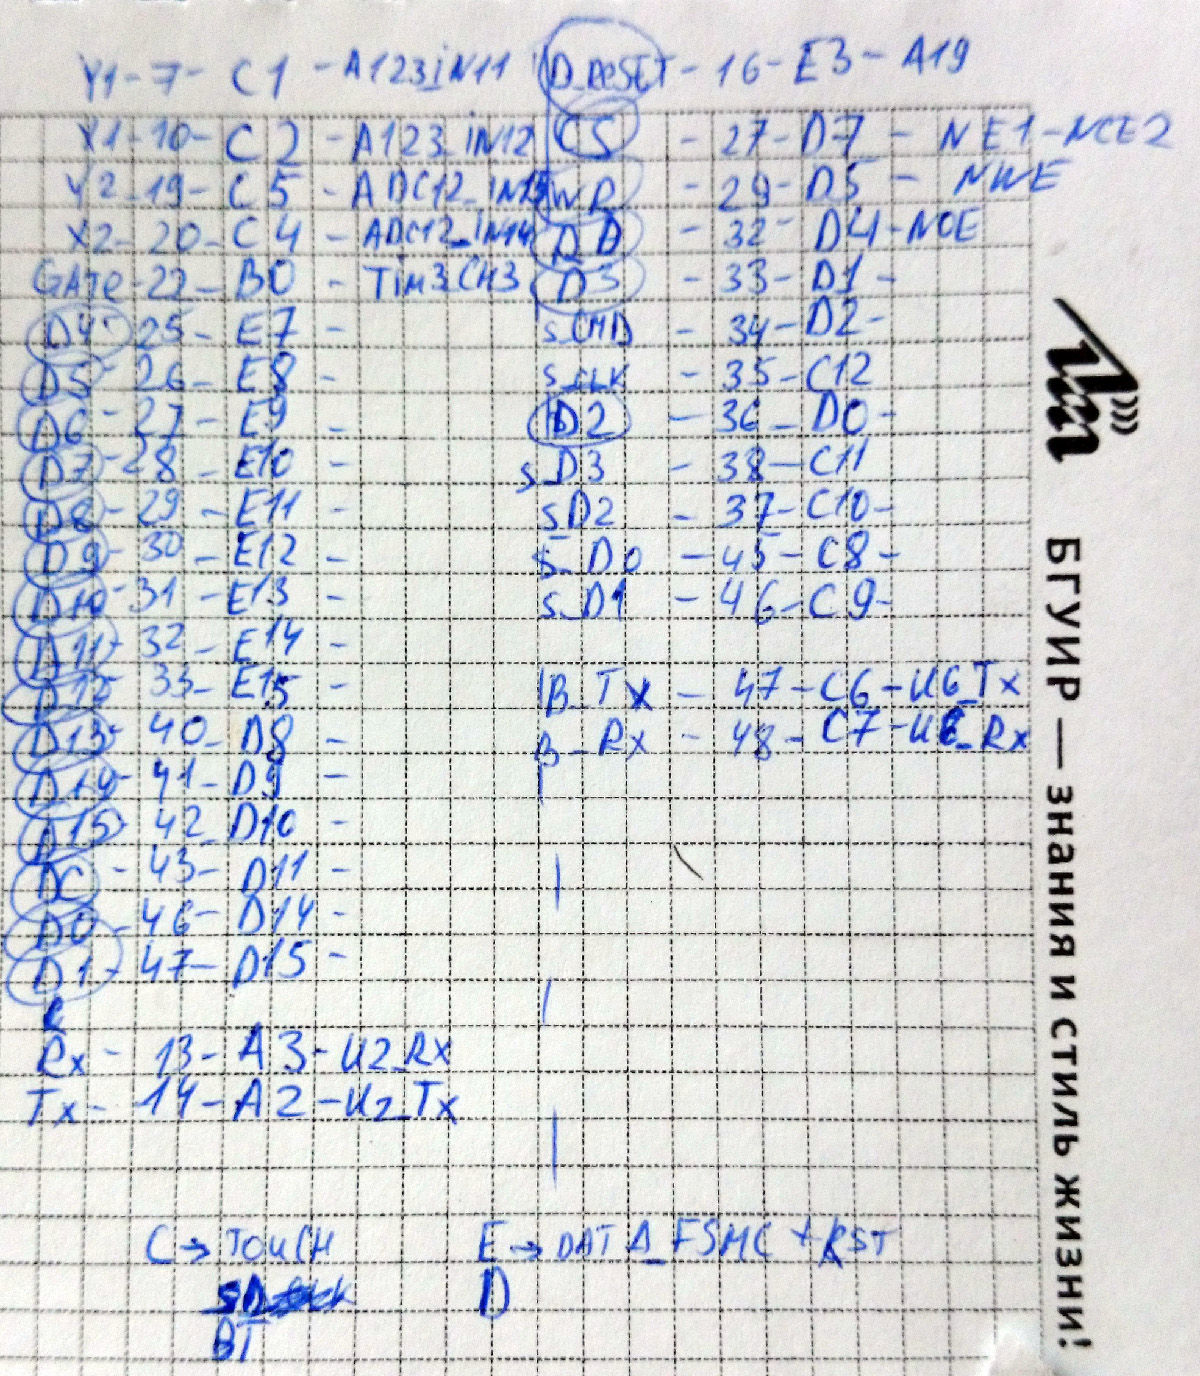 Y1-7- C1 - A123iN11
X1-10- C2 - A123_iN12
Y2-19- C5 - ADC12_iN15
X2-20- C4 - ADC12_iN14
GATe-22- B0 - TiM3CH3
D4-25- E7 -
D5-26- E8 -
D6-27- E9 -
D7-28- E10 -
D8-29- E11 -
D9-30- E12 -
D10-31- E13 -
D11-32- E14 -
D12 33- E15 -
D13-40- D8 -
D14-41- D9 -
D15-42- D10 -
DC-43- D11 -
D0-46- D14 -
D1-47- D15 -
Rx- 13- A3- U2_Rx
Tx- 14- A2-U2_Tx
D_ReSET- 16- E3- A19
CS - 27- D7 - NE1-NCE2
WR - 29- D5 - NWE
- 32- D4-NOE
D3 - 33- D1 -
S_CMD - 34- D2-
S_CLK - 35- C12
D2 - 36- D0-
S_D3 - 38- C11
S_D2 - 37- C10-
S_D0 - 45- C8-
S_D1 - 46- C9-
B_Tx - 47- C6-U6_Tx
B_Rx - 48- C7-U6_Rx
C → TOUCH
BT
E → DATA_FSMC + RST
D
БГУИР — знания и стиль жизни!